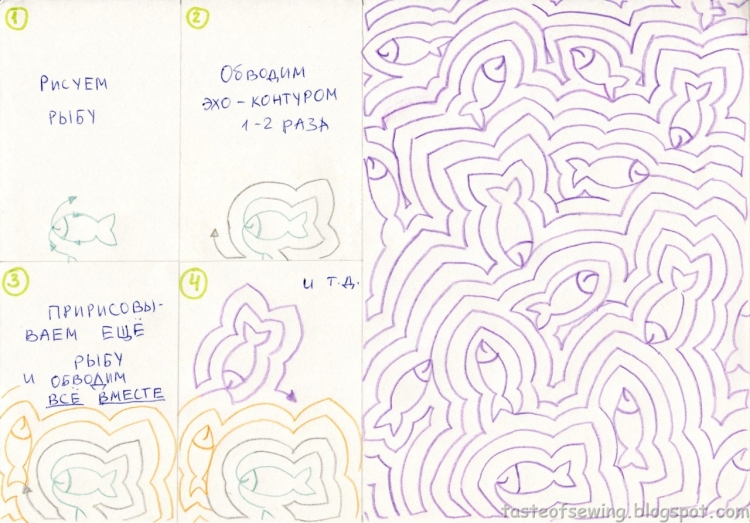 1
Рисуем
рыбу
2
Обводим
эхо-контуром
1-2 раза
3
Пририсовы-
ваем ещё
рыбу
и обводим
всё вместе
4
и т.д.
tasteofsewing.blogspot.com